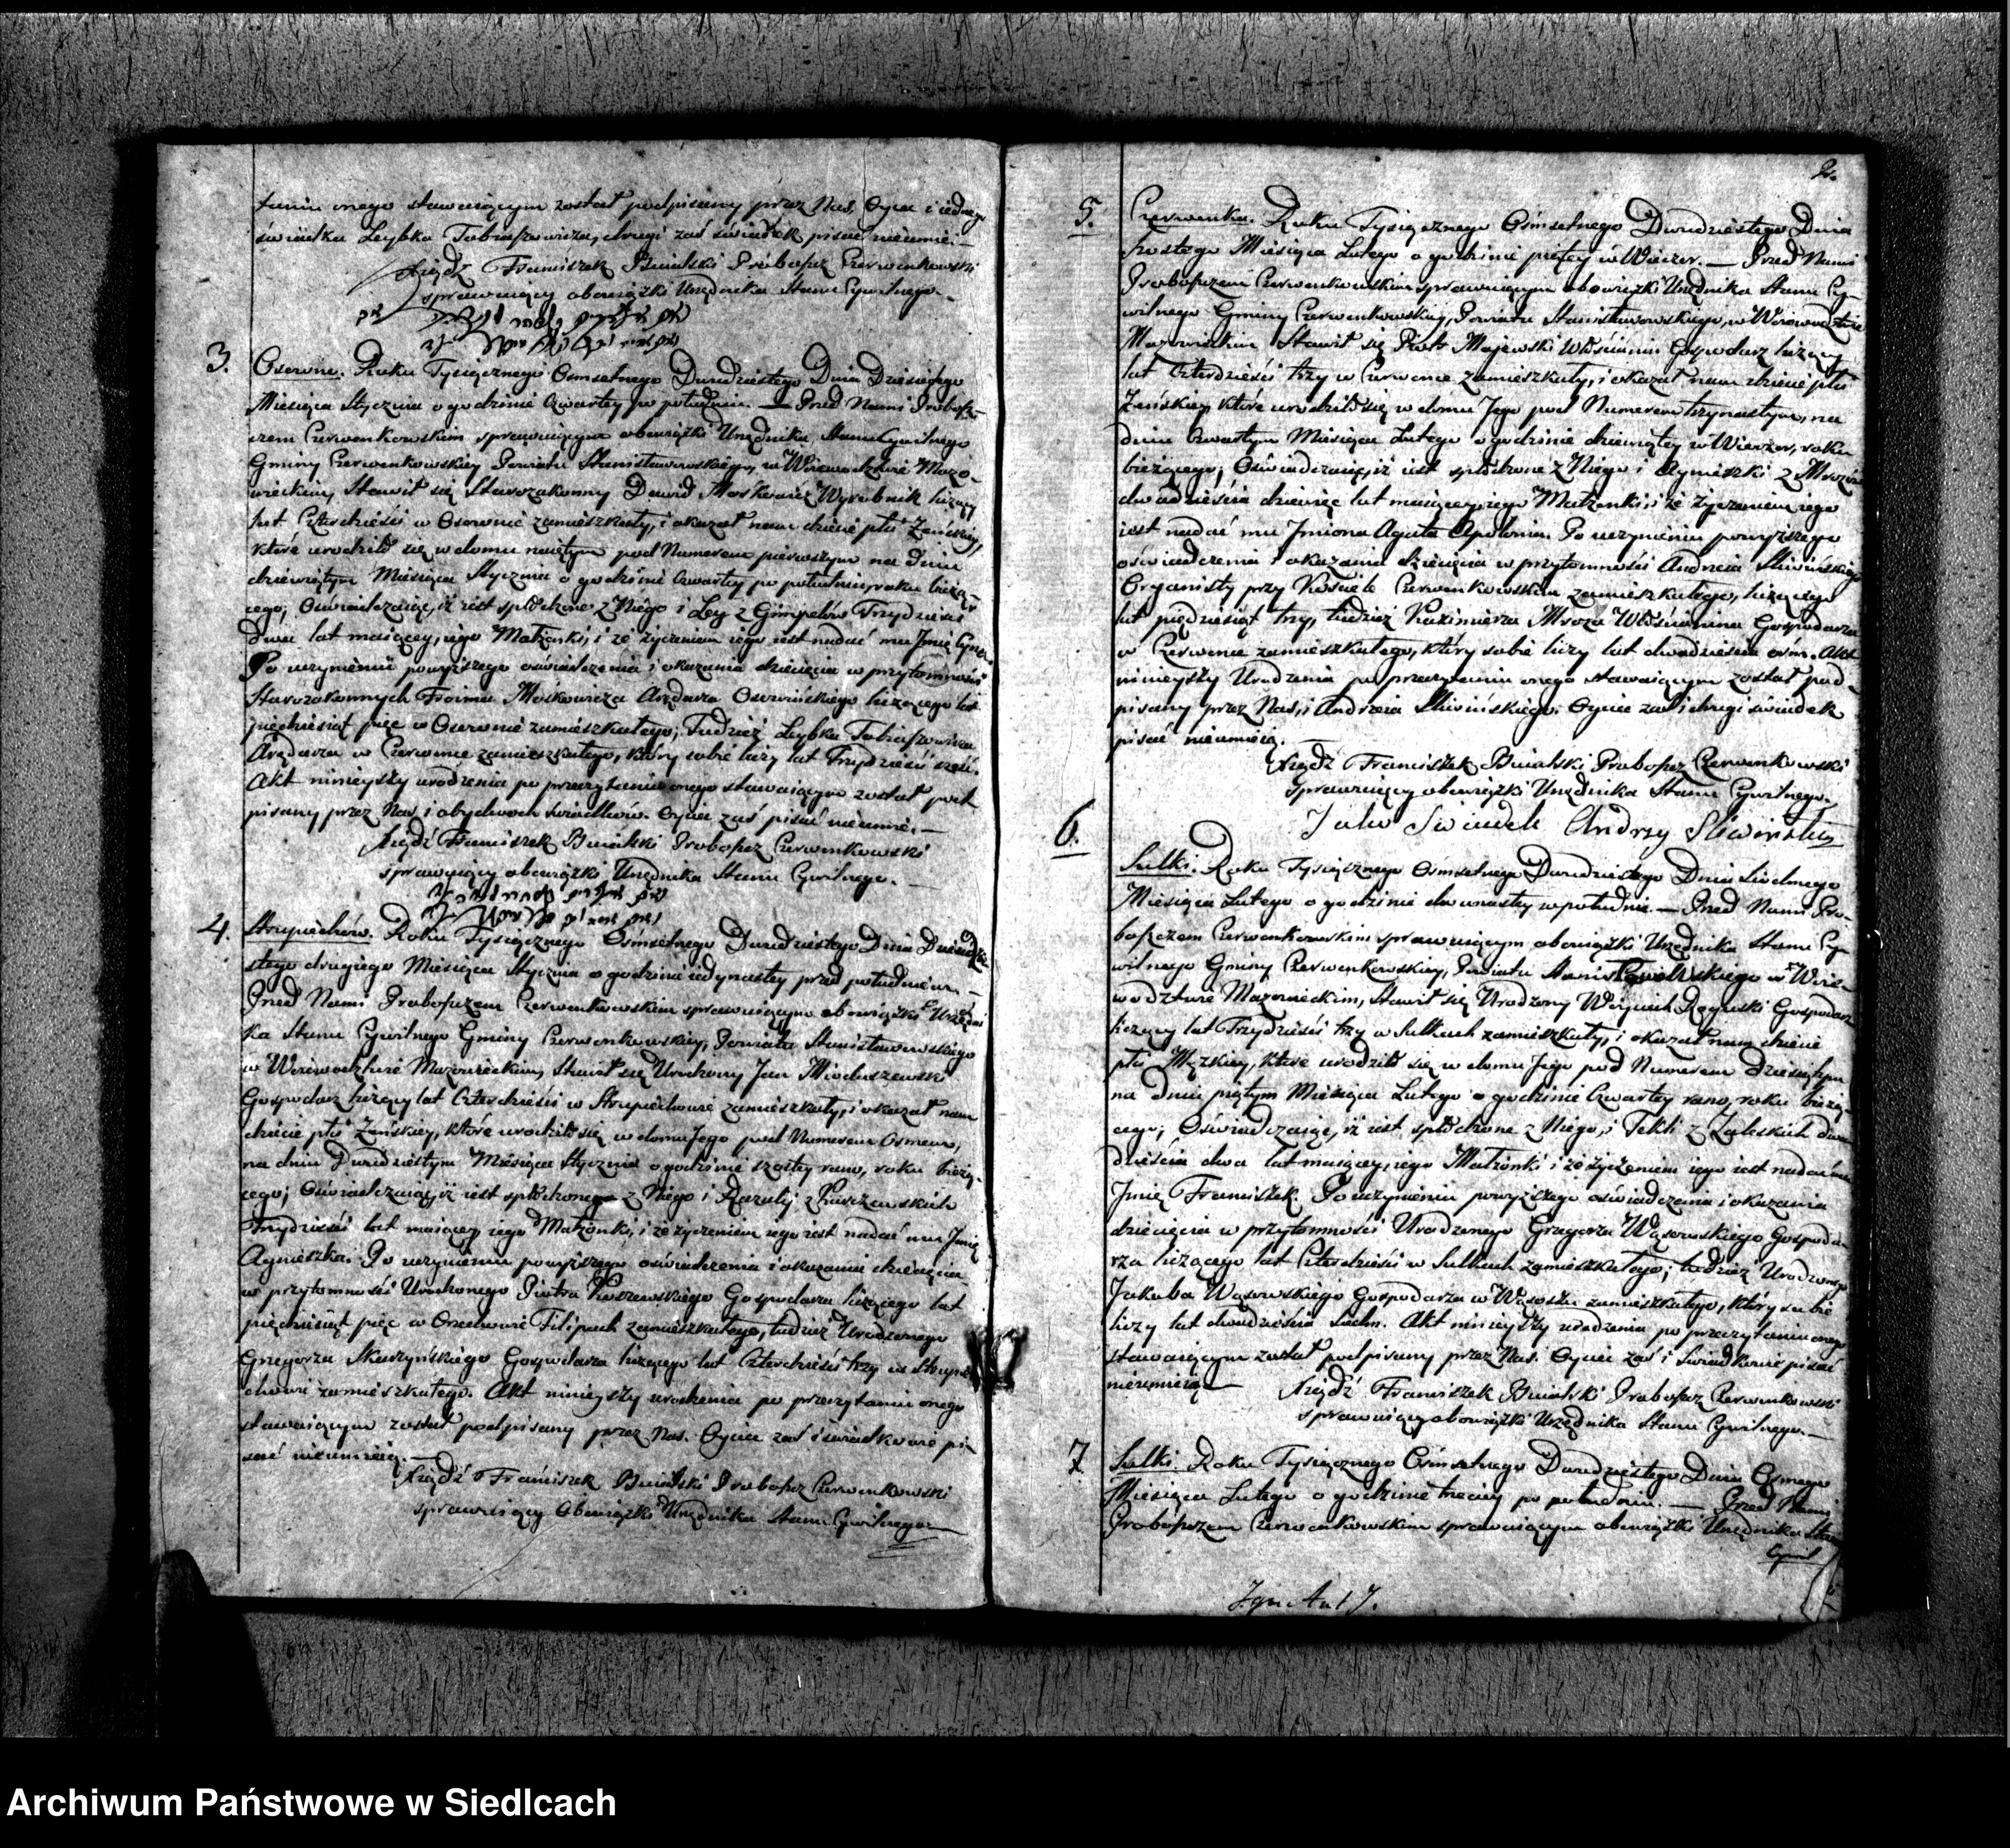 taniu onego stawaiącym został podpisany przez Nas, Oyca i iednego
świadka Leybka Tobiaszowicza, drugi zaś świadek pisać nieumie. —
Xiądz Franciszek Bienlski Proboszcz Czerwonkowski
sprawuiący obowiązki Urzędnika Stanu Cywilnego. —
3. Osowno. Roku Tysiącznego Osmsetnego Dwudziestego Dnia Dziesiątego
Miesiąca Stycznia o godzinie czwartey po południu. — Przed Nami Probosz-
czem Czerwonkowskim sprawuiącym obowiązki Urzędnika Stanu Cywilnego
Gminy Czerwonkowskiey Powiatu Stanisławowskiego, w Woiewodztwie Mazo-
wieckim, Stawił się Starozakonny Dawid Moskowicz Wyrobnik liczący
lat Czterdzieści w Osownie zamieszkały, i okazał nam dziecie płci Zeńskiey,
które urodziło się w domu pod Numerem pierwszym na dniu
dziewiątym Miesiąca Stycznia o godzinie czwartey po południu, roku bieżą-
cego; Oświadczaiąc, iż iest spłodzone z Niego i Ley z Gimpelów Trzydzieści
Dwa lat maiącey, iego Małżonki, i że życzeniem iego iest nadać mu Imię
Po uczynieniu powyższego oświadczenia i okazania dziecięcia w przytomności
Starozakonnych Froima Moskowicza Arędarza Osowińskiego liczącego lat
pięcdziesiąt pięc w Osownie zamieszkałego; Tudzież Leybka Tobiaszowicza
Arędarza w Czerwonce zamieszkałego, który sobie liczy lat Trzydzieści sześć.
Akt ninieyszy urodzenia po przeczytaniu onego stawaiącym został pod-
pisany przez Nas, i obydwoch świadków. Oyciec zaś pisać nieumie. —
Xiądz Franciszek Bienlski Proboszcz Czerwonkowski
sprawuiący obowiązki Urzędnika Stanu Cywilnego. —
4. Strupiechów. Roku Tysiącznego Osmsetnego Dwudziestego Dnia Dwudzie-
stego drugiego Miesiąca Stycznia o godzinie iedynastey przed południem. —
Przed Nami Proboszczem Czerwonkowskim sprawuiącym obowiązki Urzędni-
ka Stanu Cywilnego Gminy Czerwonkowskiey, Powiatu Stanisławowskiego
w Woiewodztwie Mazowieckim, Stawił się Urodzony Jan Mioduszewski
Gospodarz liczący lat Czterdzieści w Strupiechowie zamieszkały, i okazał nam
dziecie płci Zeńskiey, które urodziło się w domu Jego pod Numerem Osmem,
na dniu Dwudziestym Miesiąca Stycznia o godzinie szostey rano, roku bieżą-
cego; Oświadczaiąc, iż iest spłodzone z Niego i Rozalij z
Trzydzieści lat maiącey, iego Małżonki, i że życzeniem iego iest nadać mu Imię
Agnieszka. Po uczynieniu powyższego oświadczenia i okazania dziecięcia
w przytomności Urodzonego Piotra Gospodarza liczącego lat
pięcdziesiąt pięc w Filipach zamieszkałego, tudzież Urodzonego
Grzegorza Skarzyńskiego Gospodarza liczącego lat Czterdzieści trzy w Strupie-
chowie zamieszkałego. Akt ninieyszy urodzenia po przeczytaniu onego
stawaiącym został podpisany przez Nas. Oyciec zaś i świadkowie pi-
sać nieumieią. —
Xiądz Franciszek Bienlski Proboszcz Czerwonkowski
sprawuiący Obowiązki Urzędnika Stanu Cywilnego. —
2.
5. Czerwonka. Roku Tysiącznego Osmsetnego Dwudziestego Dnia
szostego Miesiąca Lutego o godzinie piątey w Wieczor. — Przed Nami
Proboszczem Czerwonkowskim sprawuiącym obowiązki Urzędnika Stanu Cy-
wilnego Gminy Czerwonkowskiey, Powiatu Stanisławowskiego, w Woiewodztwie
Mazowieckim Stawił się Piotr Majewski Włościanin Gospodarz liczący
lat Czterdzieści trzy w Czerwonce zamieszkały, i okazał nam dziecie płci
Zeńskiey, które urodziło się w domu Jego pod Numerem trzynastym, na
dniu czwartym Miesiąca Lutego o godzinie dziewiątey w Wieczor, roku
bieżącego; Oświadczaiąc, iż iest spłodzone z Niego i Agnieszki z Mrozów
dwadzieścia dziewięc lat maiącey, iego Małżonki, i że życzeniem iego
jest nadać mu Imiona Agata Apolonia. Po uczynieniu powyższego
oświadczenia i okazania dziecięcia w przytomności Andrzeia Sliwińskiego
Organisty przy Kościele Czerwonkowskim zamieszkałego, liczącego
lat pięćdziesiąt trzy, tudzież Kazimierza Mroza Włościanina Gospodarza
w Czerwonce zamieszkałego, który sobie liczy lat dwadzieścia osm. Akt
ninieyszy Urodzenia po przeczytaniu onego stawaiącym został pod-
pisany przez Nas, i Andrzeia Sliwińskiego. Oyciec zaś i drugi świadek
pisać nieumieią. —
Xiądz Franciszek Bienlski Proboszcz Czerwonkowski
Sprawuiący obowiązki Urzędnika Stanu Cywilnego.
Jako Swiadek Andrzy Sliwinski
6. Sulki. Roku Tysiącznego Osmsetnego Dwudziestego Dnia Siodmego
Miesiąca Lutego o godzinie dwunastey w południe. — Przed Nami Pro-
boszczem Czerwonkowskim sprawuiącym obowiązki Urzędnika Stanu Cy-
wilnego Gminy Czerwonkowskiey, Powiatu Stanisławowskiego w Woie-
wodztwie Mazowieckim, Stawił się Urodzony Woyciech Roguski Gospodarz
liczący lat Trzydzieści trzy w Sulkach zamieszkały, i okazał nam dziecie
płci Męzkiey, które urodziło się w domu Jego pod Numerem dziesiątym
na dniu piątym Miesiąca Lutego o godzinie Czwartey rano, roku bieżą-
cego; Oświadczaiąc, iż iest spłodzone z Niego, i Tekli z Zaleskich dwa-
dzieścia dwa lat maiącey, iego Małżonki i że życzeniem iego iest nadać mu
Imię Franciszek. Po uczynieniu powyższego oświadczenia i okazania
dziecięcia w przytomności Urodzonego Grzegorza Wąsowskiego Gospoda-
rza liczącego lat Czterdzieści w Sulkach zamieszkałego; tudzież Urodzonego
Jakuba Wąsowskiego Gospodarza w Wąsoszu zamieszkałego, który sobie
liczy lat dwadzieścia siedm. Akt ninieyszy urodzenia po przeczytaniu onego
stawaiącym został podpisany przez Nas. Oyciec zaś i Swiadkowie pisać
nieumieią. — Xiądz Franciszek Bienlski Proboszcz Czerwonkowski
sprawuiący obowiązki Urzędnika Stanu Cywilnego. —
7. Sulki. Roku Tysiącznego Osmsetnego Dwudziestego Dnia Osmego
Miesiąca Lutego o godzinie trzeciey po południu. — Przed Nami
Proboszczem Czerwonkowskim sprawuiącym obowiązki Urzędnika Stanu
Cywil
Archiwum Państwowe w Siedlcach